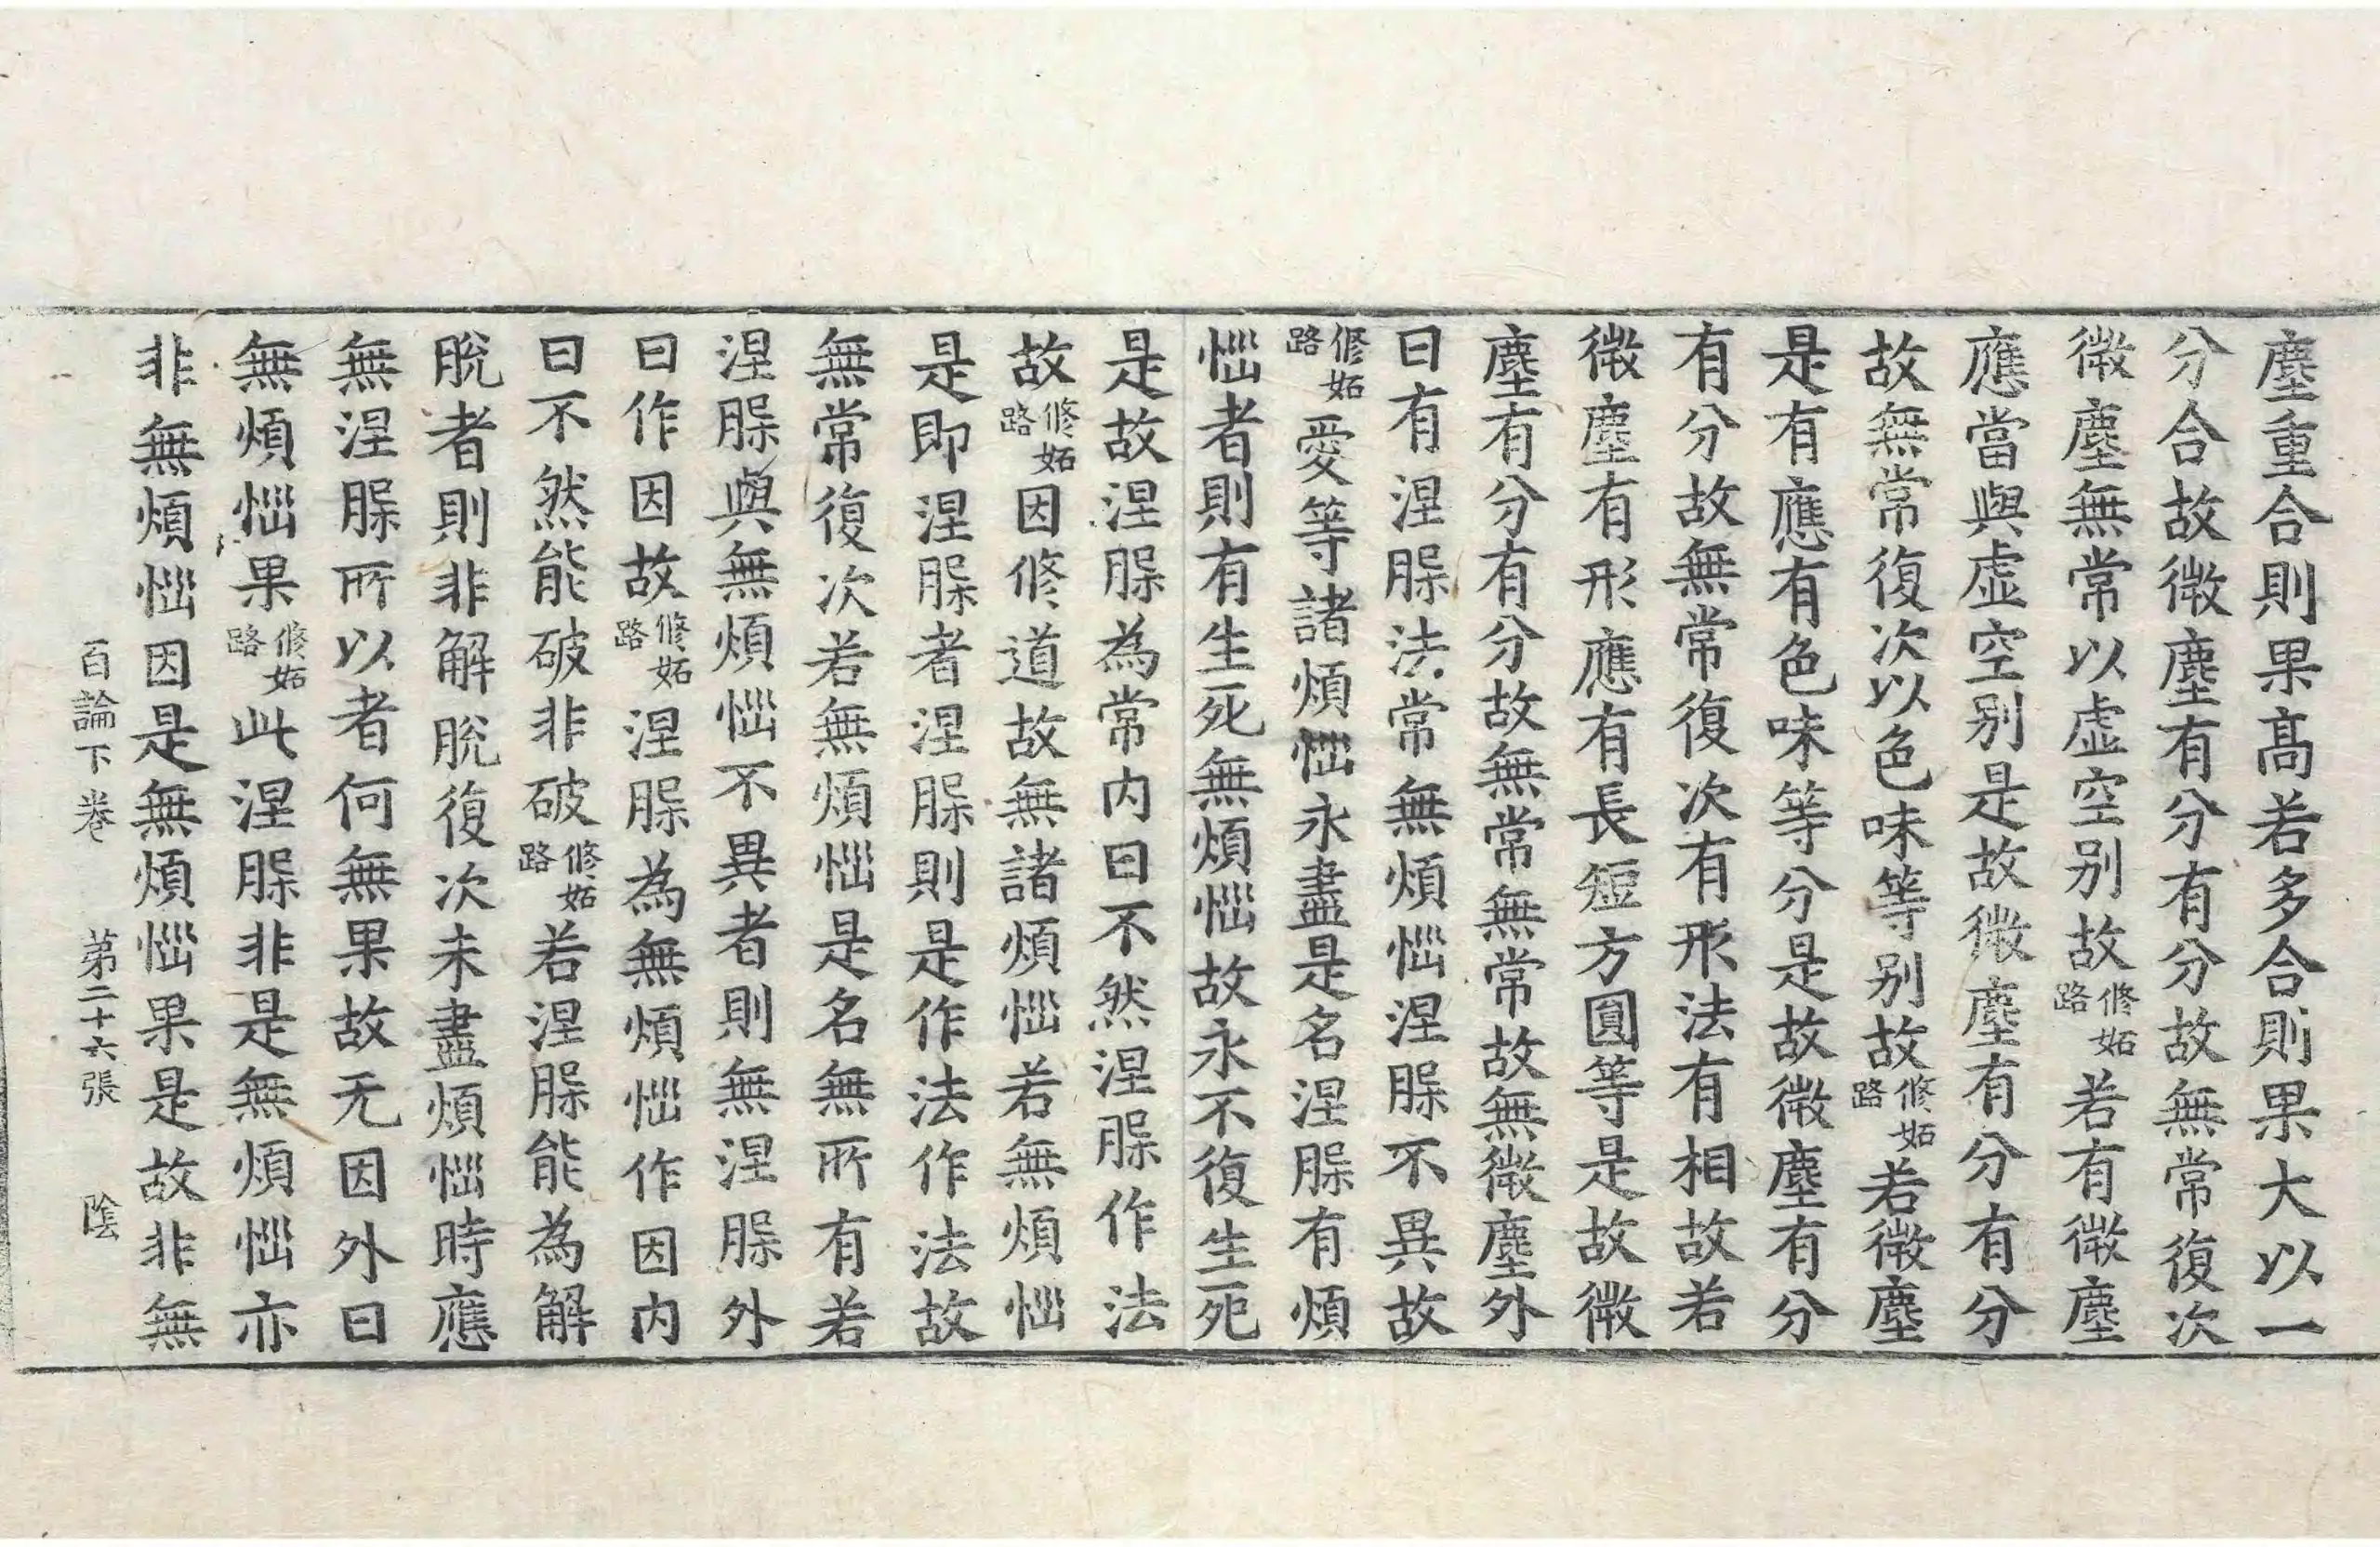 塵重合則果高若多合則果大以一
分合故微塵有分有分故無常復次
微塵無常以虛空別故修妬路若有微塵
應當與虛空別是故微塵有分有分
故無常復次以色味等別故修妬路若微塵
是有應有色味等分是故微塵有分
有分故無常復次有形法有相故若
微塵有形應有長短方圓等是故微
塵有分有分故無常無常故無微塵外
曰有涅脲法常無煩惱涅脲不異故
修妬路愛等諸煩惱永盡是名涅脲有煩
惱者則有生死無煩惱故永不復生死
是故涅脲為常內曰不然涅脲作法
故修妬路因修道故無諸煩惱若無煩惱
是即涅脲者涅脲則是作法作法故
無常復次若無煩惱是名無所有若
涅脲與無煩惱不異者則無涅脲外
曰作因故修妬路涅脲為無煩惱作因內
曰不然能破非破修妬路若涅脲能為解
脫者則非解脫復次未盡煩惱時應
無涅脲所以者何無果故无因外曰
無煩惱果修妬路此涅脲非是無煩惱亦
非無煩惱因是無煩惱果是故非無
百論下卷 第二十六張 陰